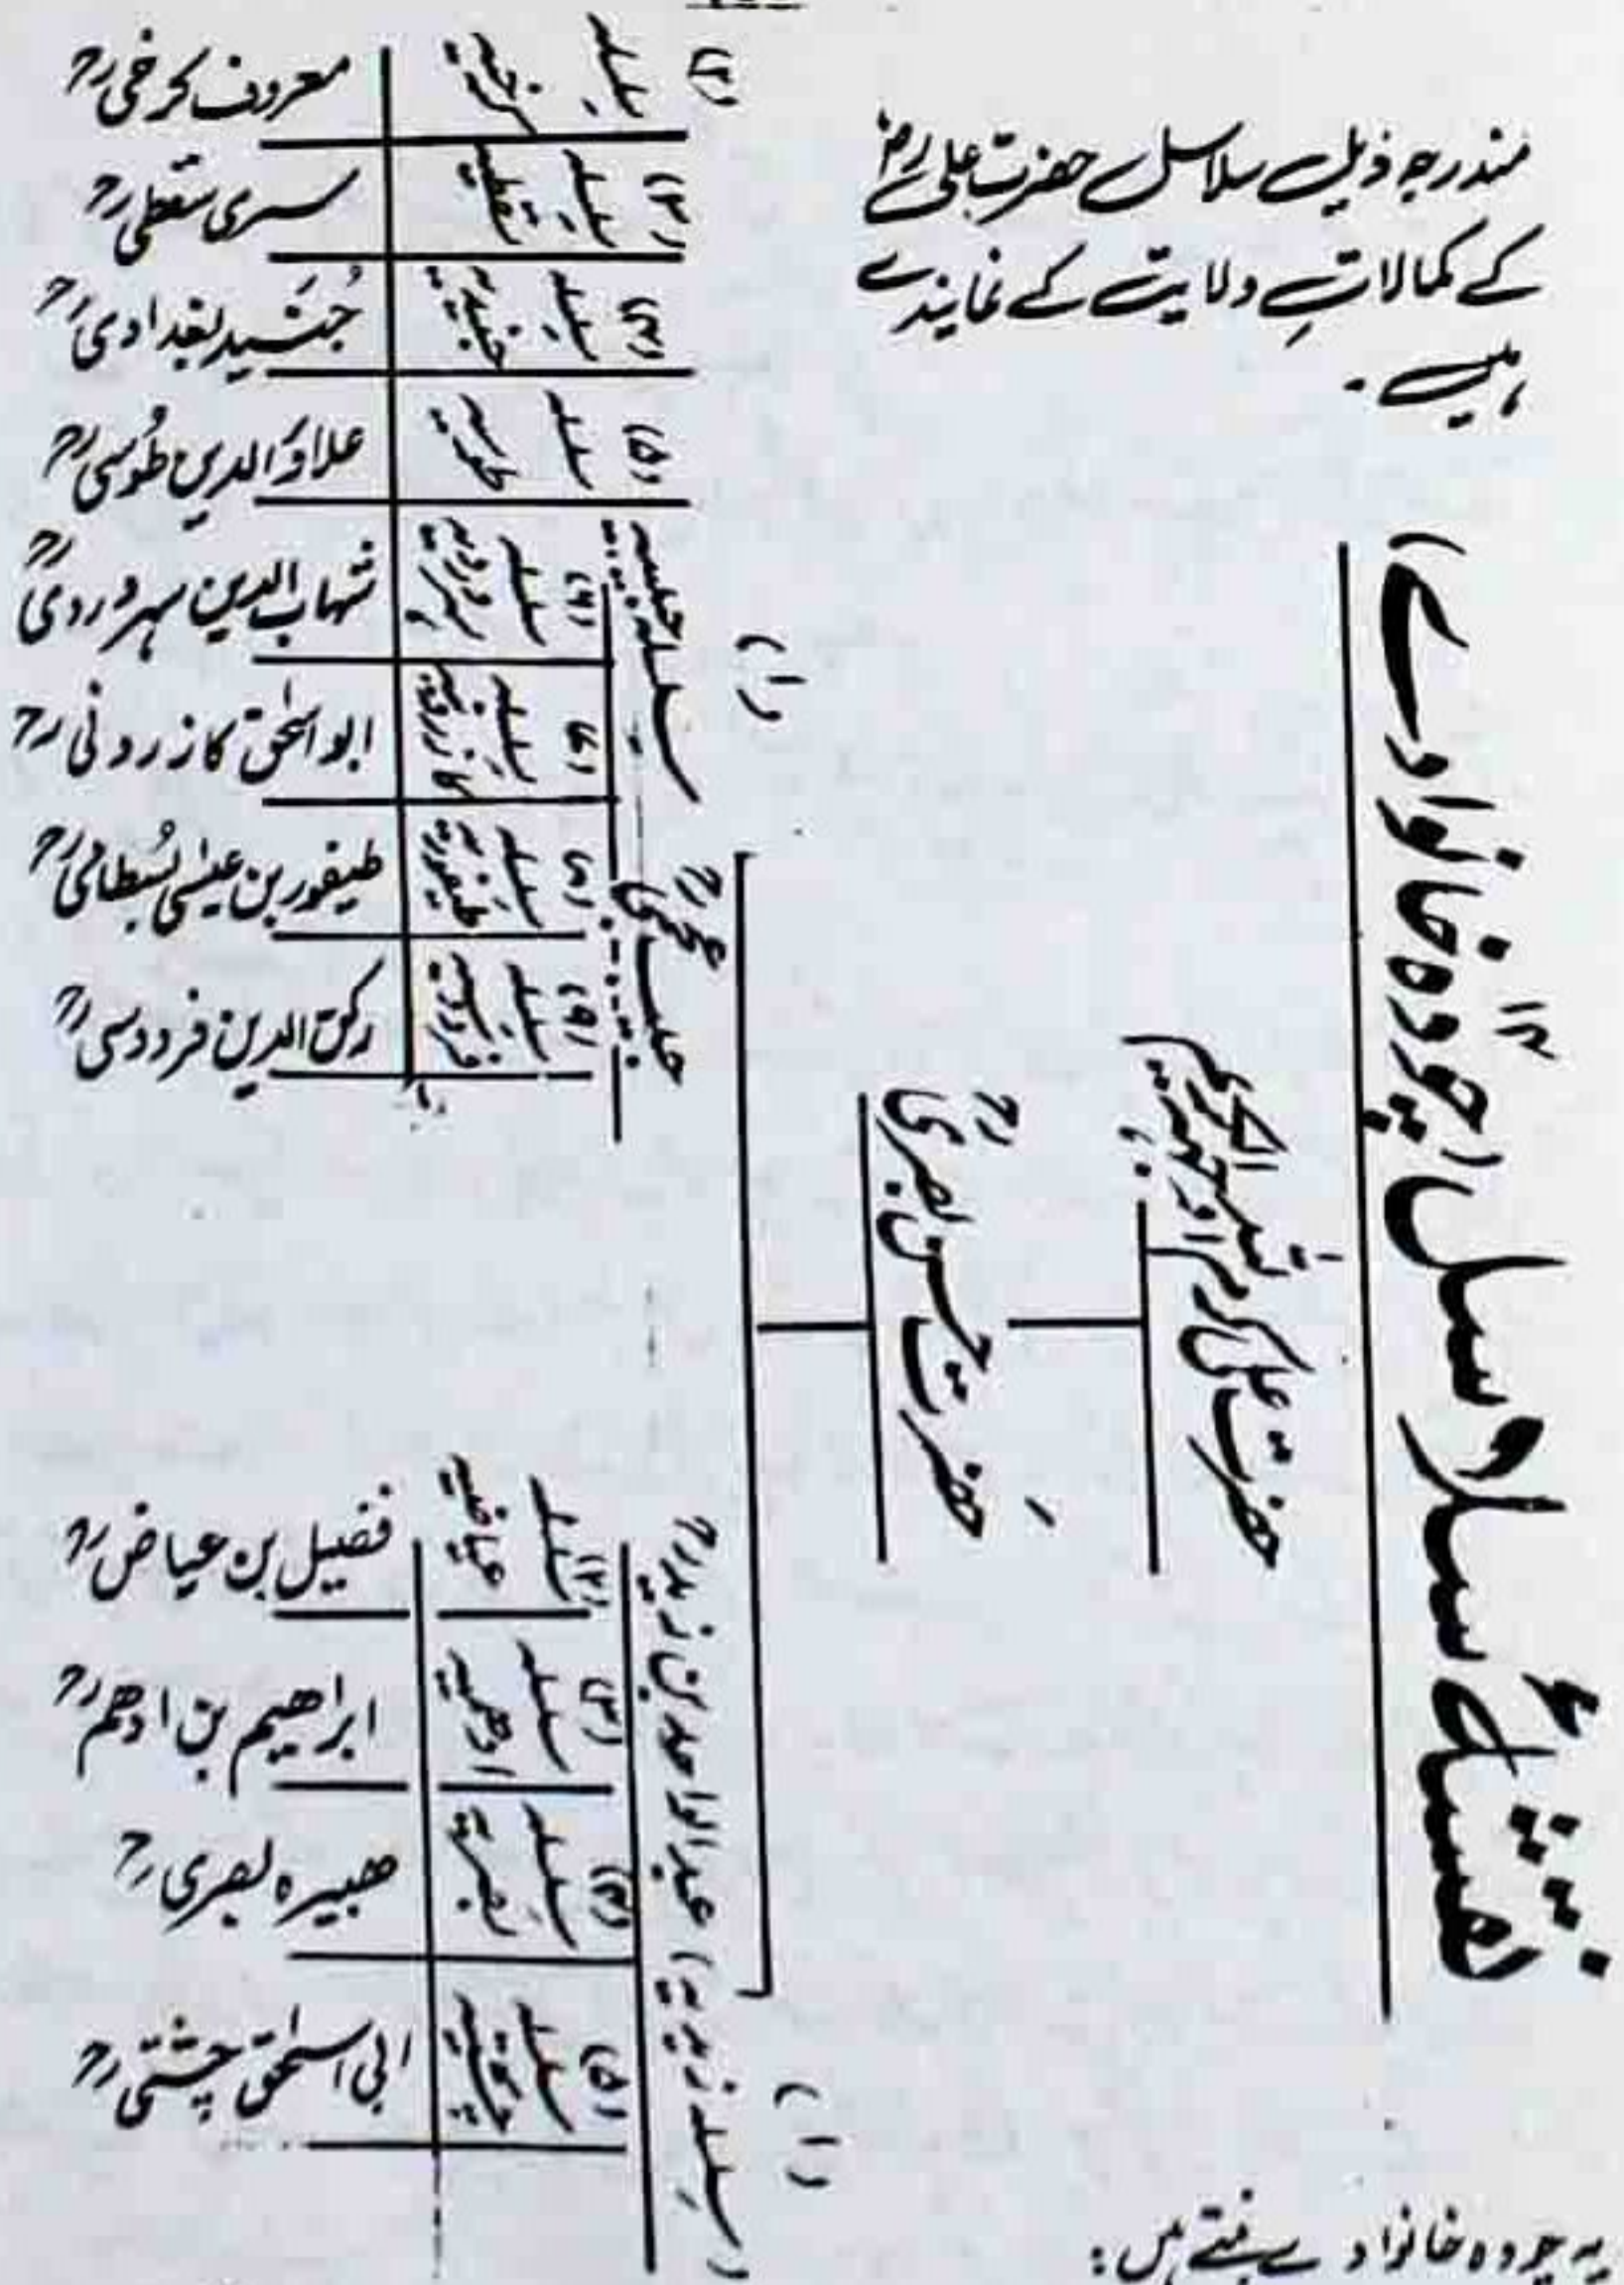 مندرجہ ذیل سلاسل حضرت علی رضؓ
کے کمالاتِ ولایت کے نمایندے
ہیں۔
نقشۂ سلاسل (چودہ خانوادے)
۱۴
حضرت علی کرم اللہ وجہہ الکریم
حضرت حسن بصری رح
(۱)
سلسلہ حبیبیہ
حبیب عجمی رح
(۲) سلسلہ کرخیہ
معروف کرخی رح
(۳) سلسلہ سقطیہ
سری سقطی رح
(۴) سلسلہ جنیدیہ
جُنَید بغدادی رح
(۵) سلسلہ طوسیہ
علاؤالدین طُوسی رح
(۶) سلسلہ سہروردیہ
شہاب الدین سہروردی رح
(۷) سلسلہ کازرونیہ
ابو اسحٰق کازرونی رح
(۸) سلسلہ طیفوریہ
طیفور بن عیسٰی بُسطامی رح
(۹) سلسلہ فردوسیہ
رکن الدین فردوسی رح
(۱)
(سلسلہ زیدیہ) عبدالواحد بن زید رح
(۲) سلسلہ عیاضیہ
فضیل بن عیاض رح
(۳) سلسلہ ادھمیہ
ابراھیم بن ادھم رح
(۴) سلسلہ بصریہ
ھبیرہ بصری رح
(۵) سلسلہ چشتیہ
ابی اسحٰق چشتی رح
یہ چودہ خانوادے بنتے ہیں: